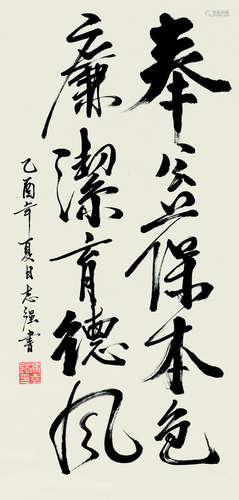 奉公保本色
廉潔育德风
乙酉年夏日志强書